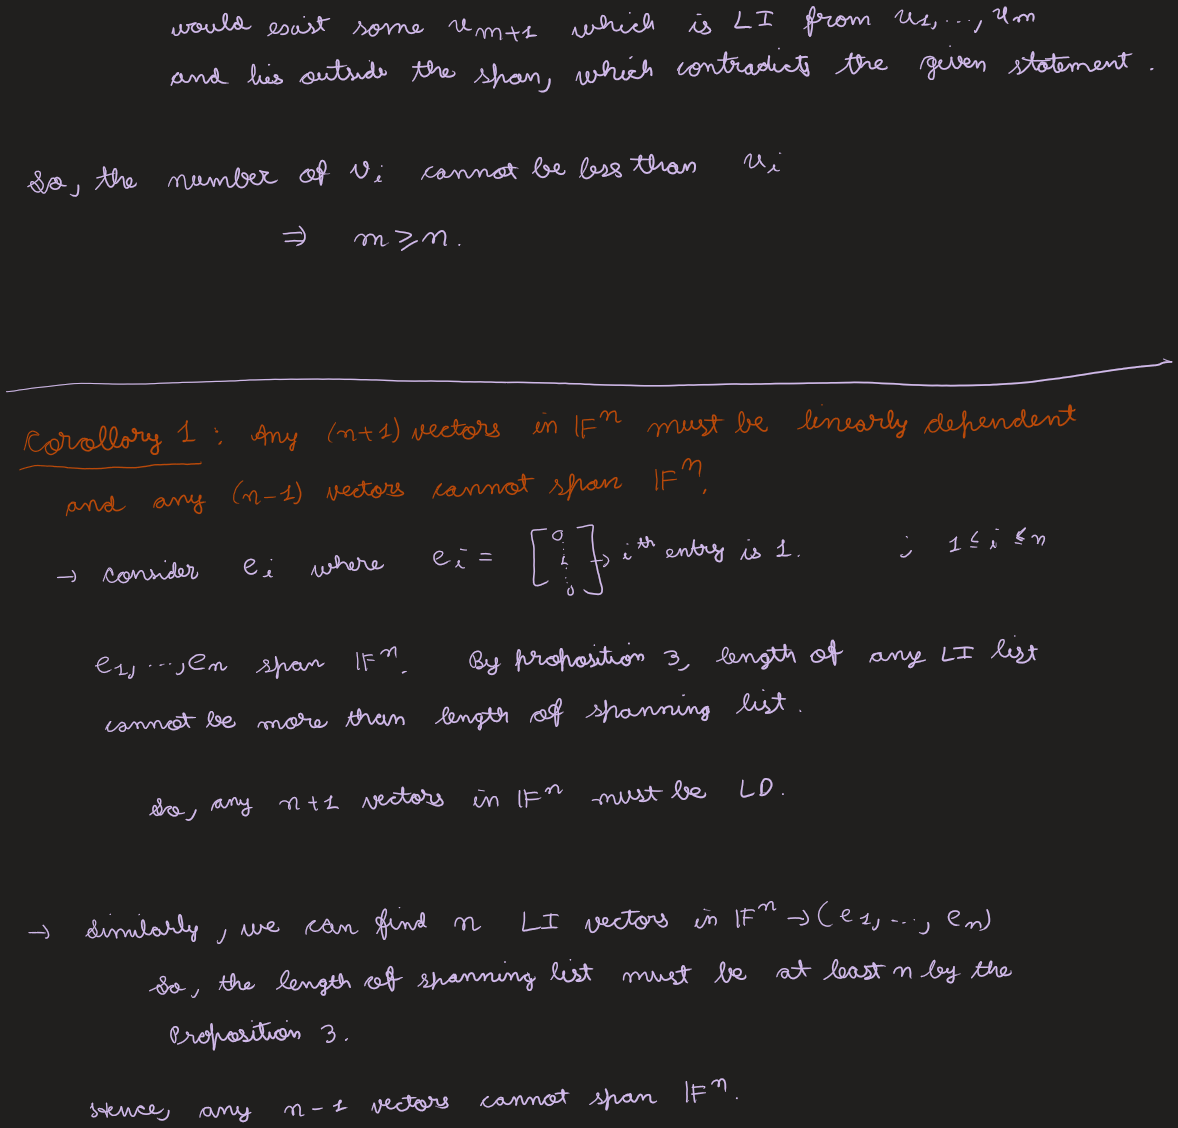 would exist some u_{m+1} which is LI from u_1,...,u_m
and lies outside the span, which contradicts the given statement.
So, the number of v_i cannot be less than u_i
⇒ m ≥ n.
Corollory 1 : Any (n+1) vectors in 𝔽^n must be linearly dependent
and any (n-1) vectors cannot span 𝔽^n.
→ Consider e_i where e_i = [0 ⋮ 1 ⋮ 0] → i^th entry is 1. ; 1 ≤ i ≤ n
e_1, ..., e_n span 𝔽^n. By proposition 3, length of any LI list
cannot be more than length of spanning list.
So, any n+1 vectors in 𝔽^n must be LD.
→ Similarly, we can find n LI vectors in 𝔽^n → (e_1, ..., e_n)
So, the length of spanning list must be at least n by the
Proposition 3.
Hence, any n-1 vectors cannot span 𝔽^n.